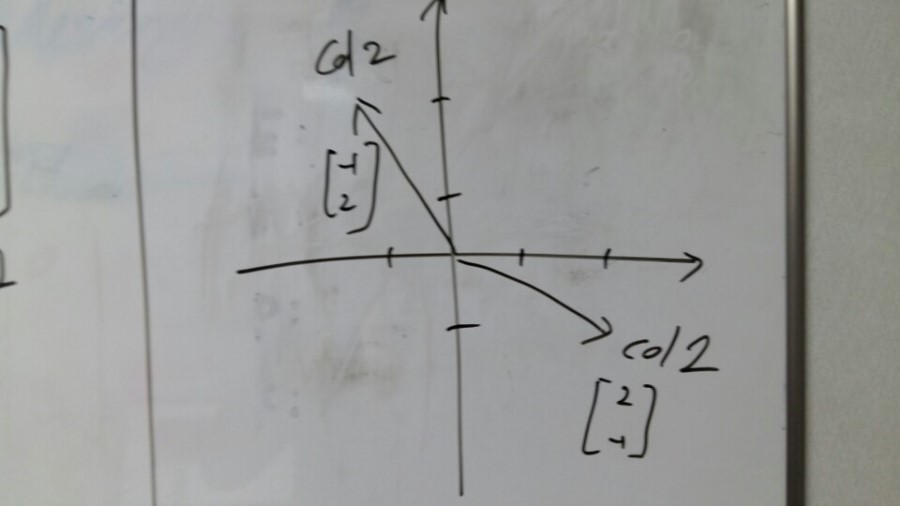 Col 2
[-1
2]
col 2
[2
-1]